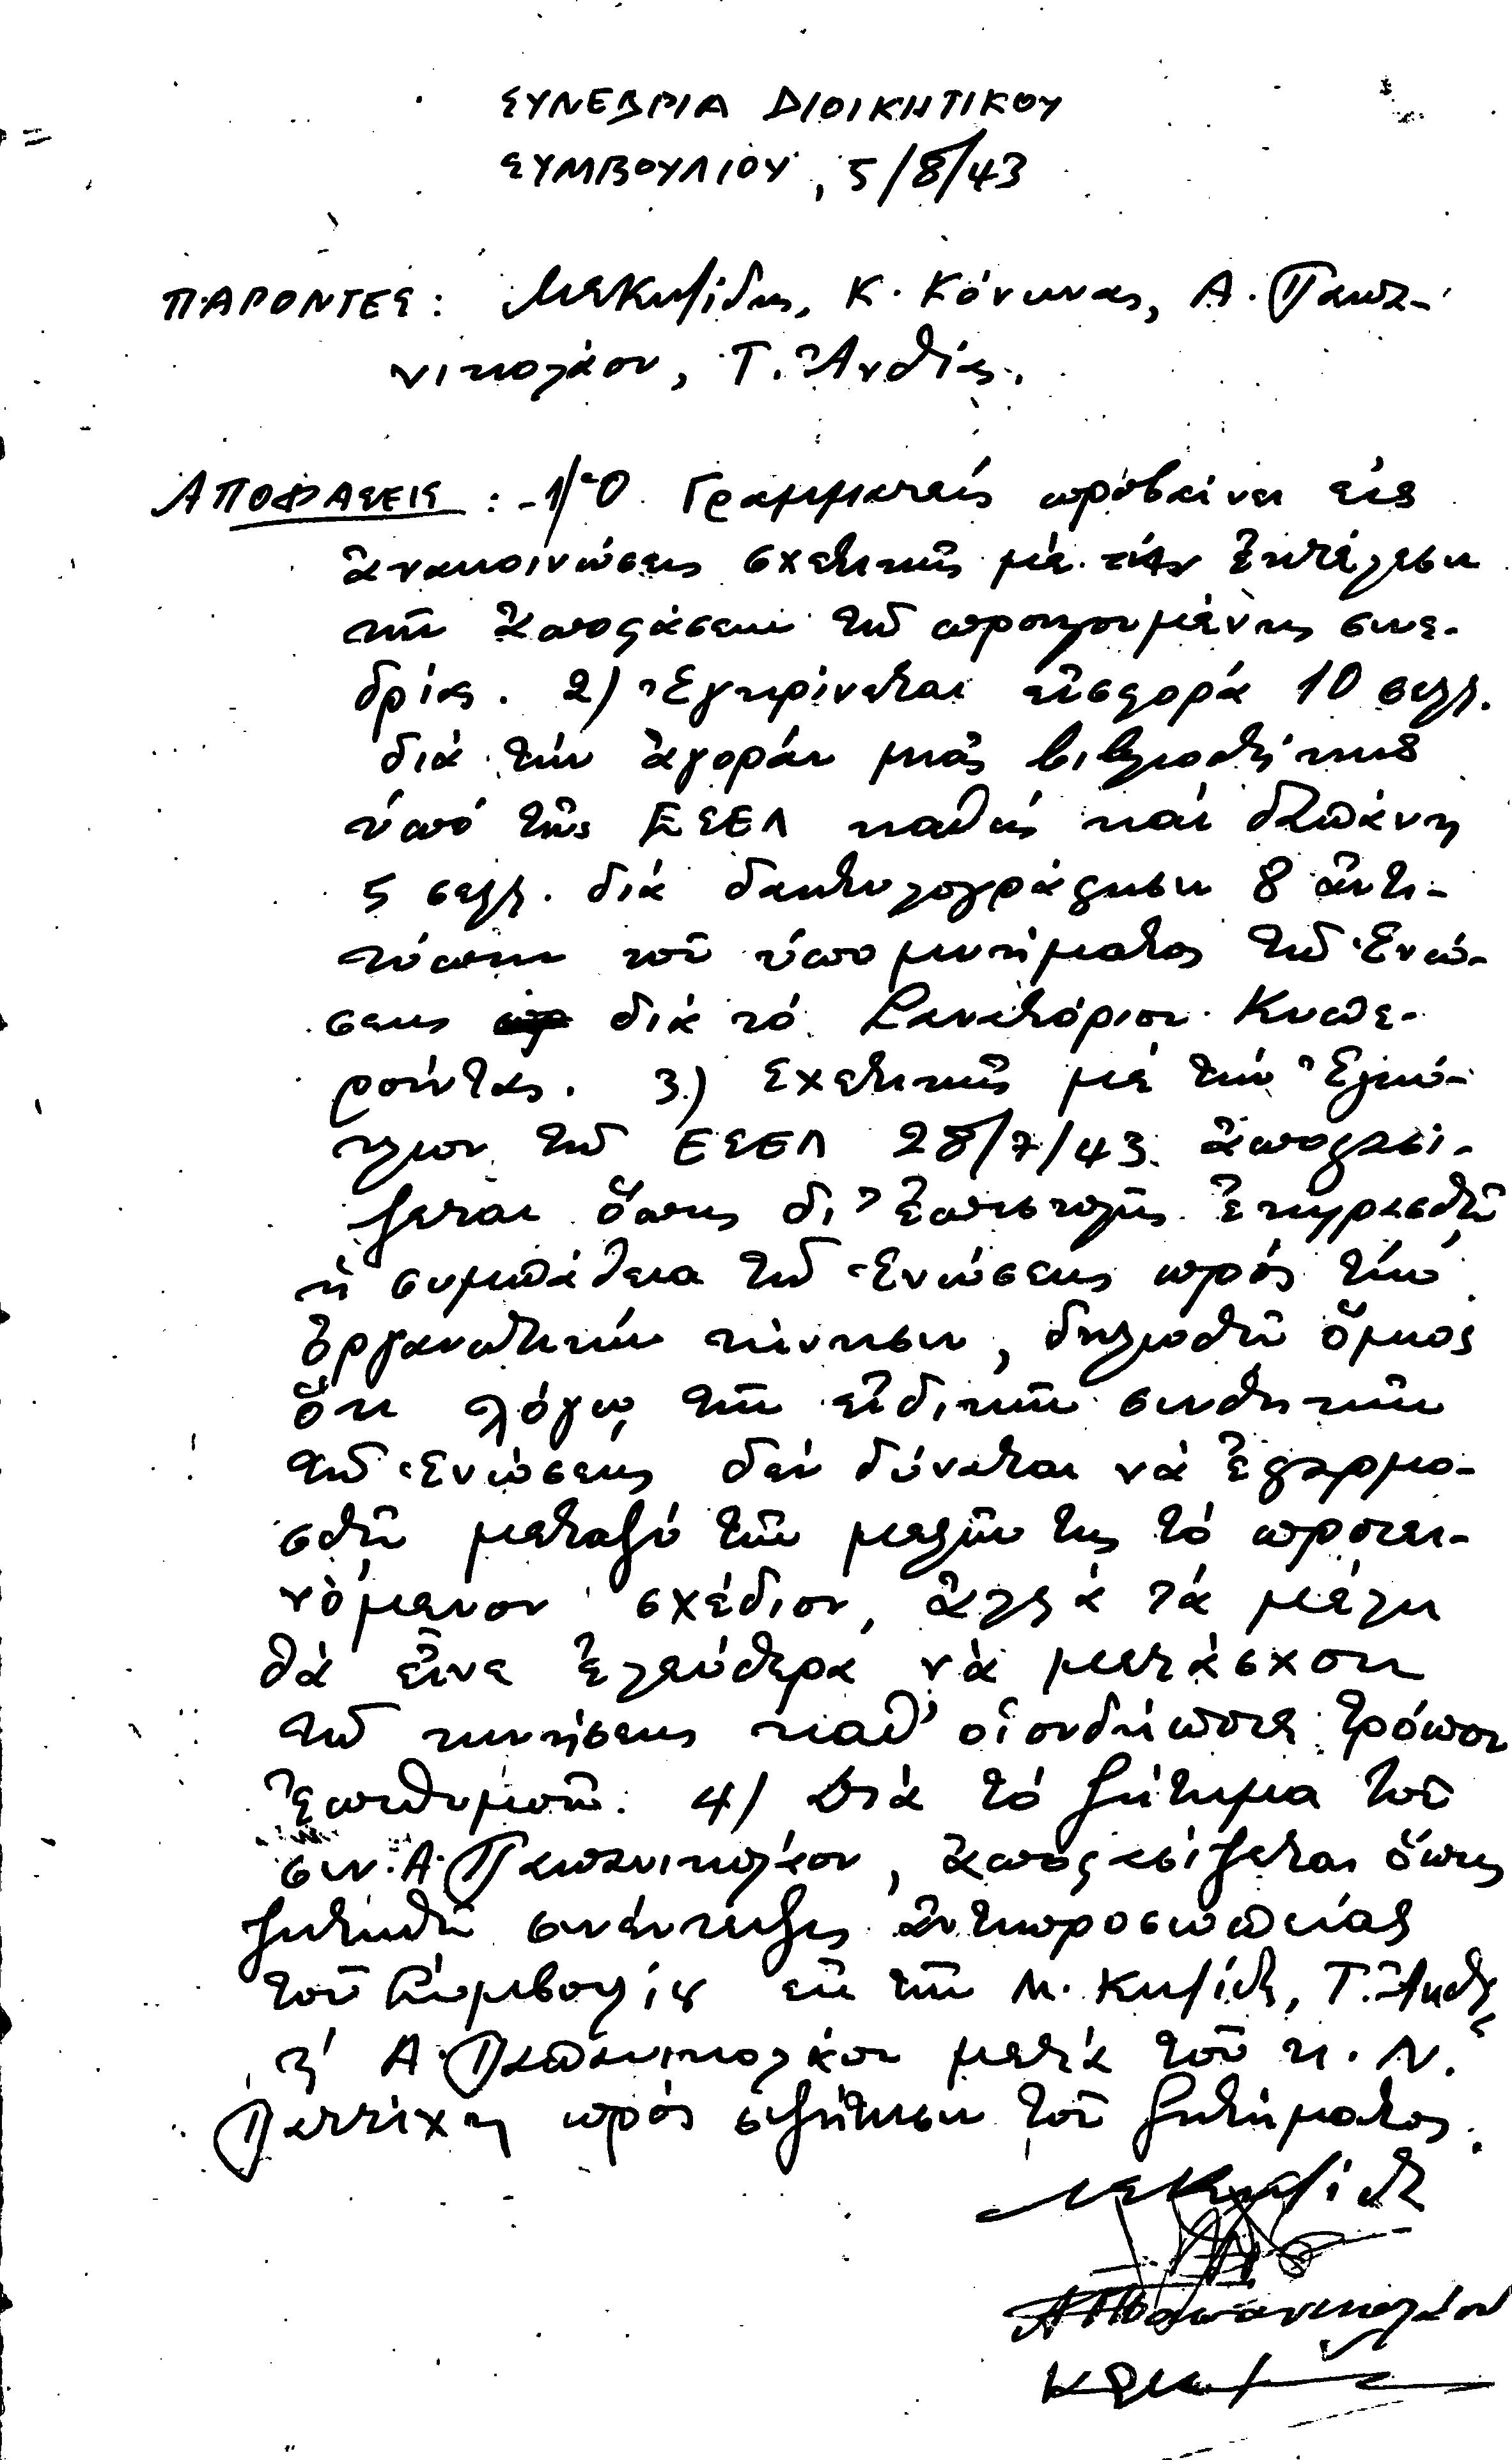 ΣΥΝΕΔΡΙΑ ΔΙΟΙΚΗΤΙΚΟΥ
ΣΥΜΒΟΥΛΙΟΥ, 5/8/43
ΠΑΡΟΝΤΕΣ: Μ. Κυζίδης, Κ. Κόνωνας, Α. Παπα-
νικολάου, Τ. Ἀνθίας.
ΑΠΟΦΑΣΕΙΣ: -1/ Ὁ Γραμματεύς προβαίνει εἰς
ἀνακοινώσεις σχετικῶς μέ τήν ἐκτέλεσιν
τῶν ἀποφάσεων τῆς προηγουμένης συνε-
δρίας. 2) Ἐγκρίνεται εἰσφορά 10 σελ.
διά τήν ἀγοράν μιᾶς βιβλιοθήκης
ὑπό τῆς ΕΣΕΛ καθώς καί δαπάνη
5 σελ. διά δακτυλογράφησιν 8 ἀντι-
τύπων τοῦ ὑπομνήματος τῆς Ἑνώ-
σεως διά τό Σανατόριον Κυπε-
ρούντας. 3) Σχετικῶς μέ τήν Ἐγκύ-
κλιον τῆς ΕΣΕΛ 28/7/43 ἀποφασί-
ζεται ὅπως δι' ἐπιστολῆς ἐκφρασθῇ
ἡ συμπάθεια τῆς Ἑνώσεως πρός τήν
ὀργανωτικήν κίνησιν, δηλωθῇ ὅμως
ὅτι λόγῳ τῶν εἰδικῶν συνθηκῶν
τῆς Ἑνώσεως δέν δύναται νά ἐφαρμο-
σθῇ μεταξύ τῶν μελῶν της τό προτει-
νόμενον σχέδιον, ἀλλά τά μέλη
θά εἶνε ἐλεύθερα νά μετάσχουν
τῆς κινήσεως καθ' οἱονδήποτε τρόπον
ἐπιθυμοῦν. 4/ Διά τό ζήτημα τοῦ
συν. Α. Παπανικολάου, ἀποφασίζεται ὅπως
ζητηθῇ συνέντευξις ἀντιπροσωπείας
τοῦ Συμβουλίου ἐκ τῶν Μ. Κυζίδη, Τ. Ἀνθία
& Α. Παπανικολάου μετά τοῦ κ. Ν.
Παττίχη πρός συζήτησιν τοῦ ζητήματος.
Μ. Κυζίδης
Α Παπανικολάου